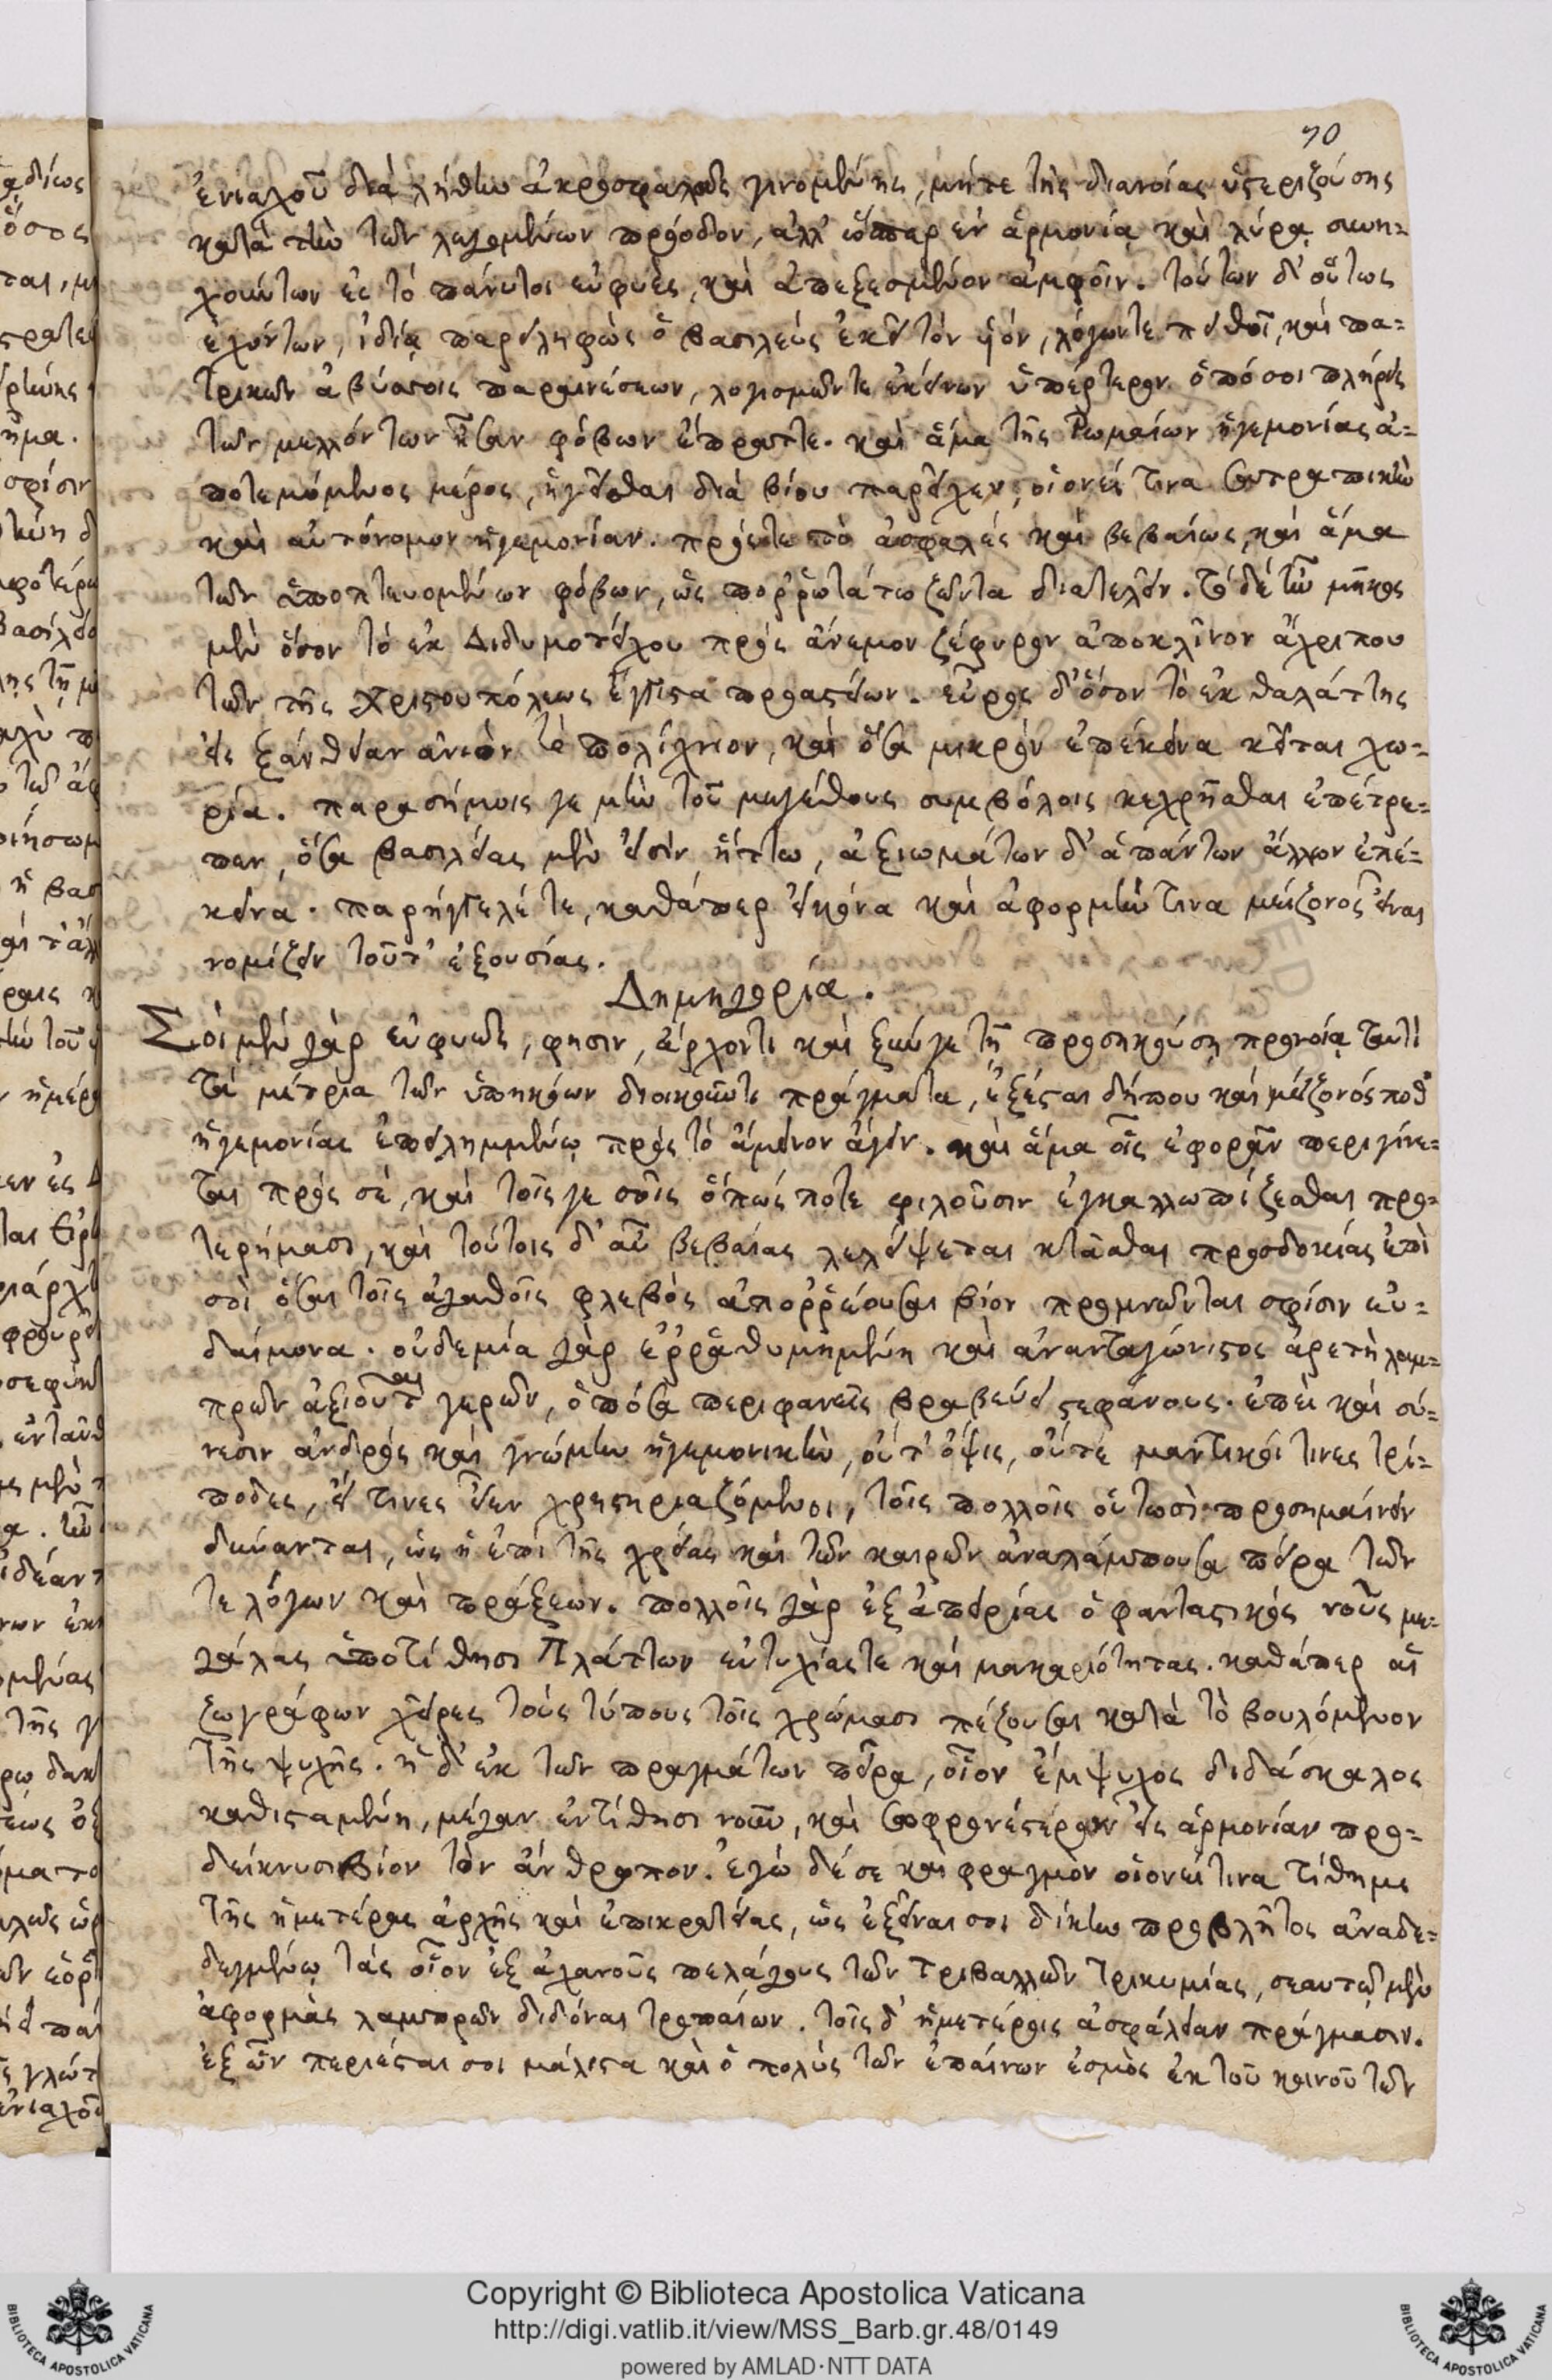 70
ἐνιαχοῦ διὰ λήθην ἀκροσφαλοῦς γινομένης, μήτε τῆς διανοίας ὑστεριζούσης
κατὰ τὴν τῶν λεγομένων πρόοδον, ἀλλ' ὥσπερ ἐν ἁρμονίᾳ καὶ λύρᾳ συνη-
χούντων ἐς τὸ πάνυ τοι εὐφυὲς, καὶ ἀπεξεσμένον ἀμφοῖν. τούτων δ' οὕτως
ἐχόντων, ἰδίᾳ παρειληφὼς ὁ βασιλεὺς ἐκεῖ τὸν υἱόν, λόγων τε πειθοῖ, καὶ πα-
τρικῶν ἀβύσσοις παραινέσεων, λογισμῶν τε ἐκείνων ὑπέρτερον ὁπόσοι πλήρεις
τῶν μελλόντων ἦσαν φόβων ἔπραττε. καὶ ἅμα τῆς Ῥωμαίων ἡγεμονίας ἀ-
ποτεμόμενος μέρος, ἡγεῖσθαι διὰ βίου παρεῖχεν, οἱονεί τινα σατραπικὴν
καὶ αὐτόνομον ἡγεμονίαν. πρός τε τὸ ἀσφαλές καὶ βεβαίως, καὶ ἅμα
τῶν ὑποπτευομένων φόβων, ὡς πορρωτάτω ζῶντα διατελεῖν. τὸ δέ ἦν μῆκος
μὲν ὅσον τὸ ἐκ Διδυμοτείχου πρὸς ἄνεμον ζέφυρον ἀποκλῖνον ἄχρι που
τῶν τῆς Χριστουπόλεως ἔγγιστα προαστείων. εὖρος δ' ὅσον τὸ ἐκ θαλάττης
εἰς Ξάνθειαν ἀνιὸν τὸ πολίχνιον, καὶ ὅσα μικρὸν ἐπέκεινα κεῖται χω-
ρία. παρασήμοις γε μὴν τοῦ μεγέθους συμβόλοις κεχρῆσθαι ἐπέτρε-
πεν, ὅσα βασιλείας μὲν εἰσὶν ἥττω, ἀξιωμάτων δ' ἁπάντων ἄλλων ἐπέ-
κεινα. παρήγγελέ τε, καθάπερ εἰκόνα καὶ ἀφορμήν τινα μείζονος εἶναι
νομίζειν τοῦτ' ἐξουσίας.
Δημηγορία.
Σοὶ μὲν γὰρ εὐφυῶς, φησιν, ἄρχοντι καὶ ξύν γε τῇ προσηκούσῃ προνοίᾳ ταυτὶ
τὰ μέτρια τῶν ὑπηκόων διοικοῦντι πράγματα, ἐξέσται δήπου καὶ μείζονός ποθ'
ἡγεμονίας ἐπειλημμένῳ πρὸς τὸ ἄμεινον ἄγειν. καὶ ἅμα οἷς ἐφορᾶν περιγίνε-
ται πρὸς σὲ, καὶ τοῖς γε σοῖς ὅπως ποτε φιλοῦσιν ἐγκαλλωπίζεσθαι προ-
τερήμασι, καὶ τούτοις δ' αὖ βεβαίας λελείψεται κτᾶσθαι προσδοκίας ἐπὶ
σοὶ ὅσαι τοῖς ἀγαθοῖς φλεβὸς ἀπορρέουσαι βίον προμνῶνται σφίσιν εὐ-
δαίμονα. οὐδεμία γὰρ ἐρραθυμημένη καὶ ἀνανταγώνιστος ἀρετὴ λαμ-
πρῶν ἀξιοῦται γερῶν, ὁπόσα περιφανεῖς βραβεύει στεφάνους. ἐπεὶ καὶ σύ-
νεσιν ἀνδρὸς καὶ γνώμην ἡγεμονικὴν, οὔτ' ὄψις, οὔτέ μαντικοί τινες τρί-
ποδες, εἴ τινες εἶεν χρηστηριαζόμενοι, τοῖς πολλοῖς οὑτωσὶ προσημαίνειν
δύνανται, ὡς ἡ ἐπὶ τῆς χρείας καὶ τῶν καιρῶν ἀναλάμπουσα πεῖρα τῶν
τε λόγων καὶ πράξεων. πολλοῖς γὰρ ἐξ ἀπειρίας ὁ φανταστικὸς νοῦς με-
γάλας ὑποτίθησι πλάττων εὐτυχίας τε καὶ μακαριότητας. καθάπερ αἱ
ζωγράφων χεῖρες τοὺς τύπους τοῖς χρώμασι πέζουσαι κατὰ τὸ βουλόμενον
τῆς ψυχῆς. ἡ δ' ἐκ τῶν πραγμάτων πεῖρα, οἷον ἔμψυχος διδάσκαλος
καθισταμένη, μέγαν ἐντίθησι νοῦν, καὶ σωφρονέστερον εἰς ἁρμονίαν προ-
δείκνυσι βίον τὸν ἄνθρωπον. ἐγὼ δέ σε καὶ φραγμὸν οἱονεί τινα τίθημι
τῆς ἡμετέρας ἀρχῆς καὶ ἐπικρατείας, ὡς ἐξεῖναι σοι δίκην προβλῆτος ἀναδε-
δεγμένῳ τὰς οἷον ἐξ ἀχανοῦς πελάγους τῶν Τριβαλλῶν τρικυμίας, σεαυτῷ μὲν
ἀφορμὰς λαμπρῶν διδόναι τροπαίων. τοῖς δ' ἡμετέροις ἀσφάλειαν πράγμασιν.
ἐξ ὧν περιέσται σοι μάλιστα καὶ ὁ πολὺς τῶν ἐπαίνων ἐσμὸς ἐκ τοῦ κοινοῦ τῶν
Copyright © Biblioteca Apostolica Vaticana
http://digi.vatlib.it/view/MSS_Barb.gr.48/0149
powered by AMLAD·NTT DATA
BIBLIOTECA APOSTOLICA VATICANA
BIBLIOTECA APOSTOLICA VATICANA